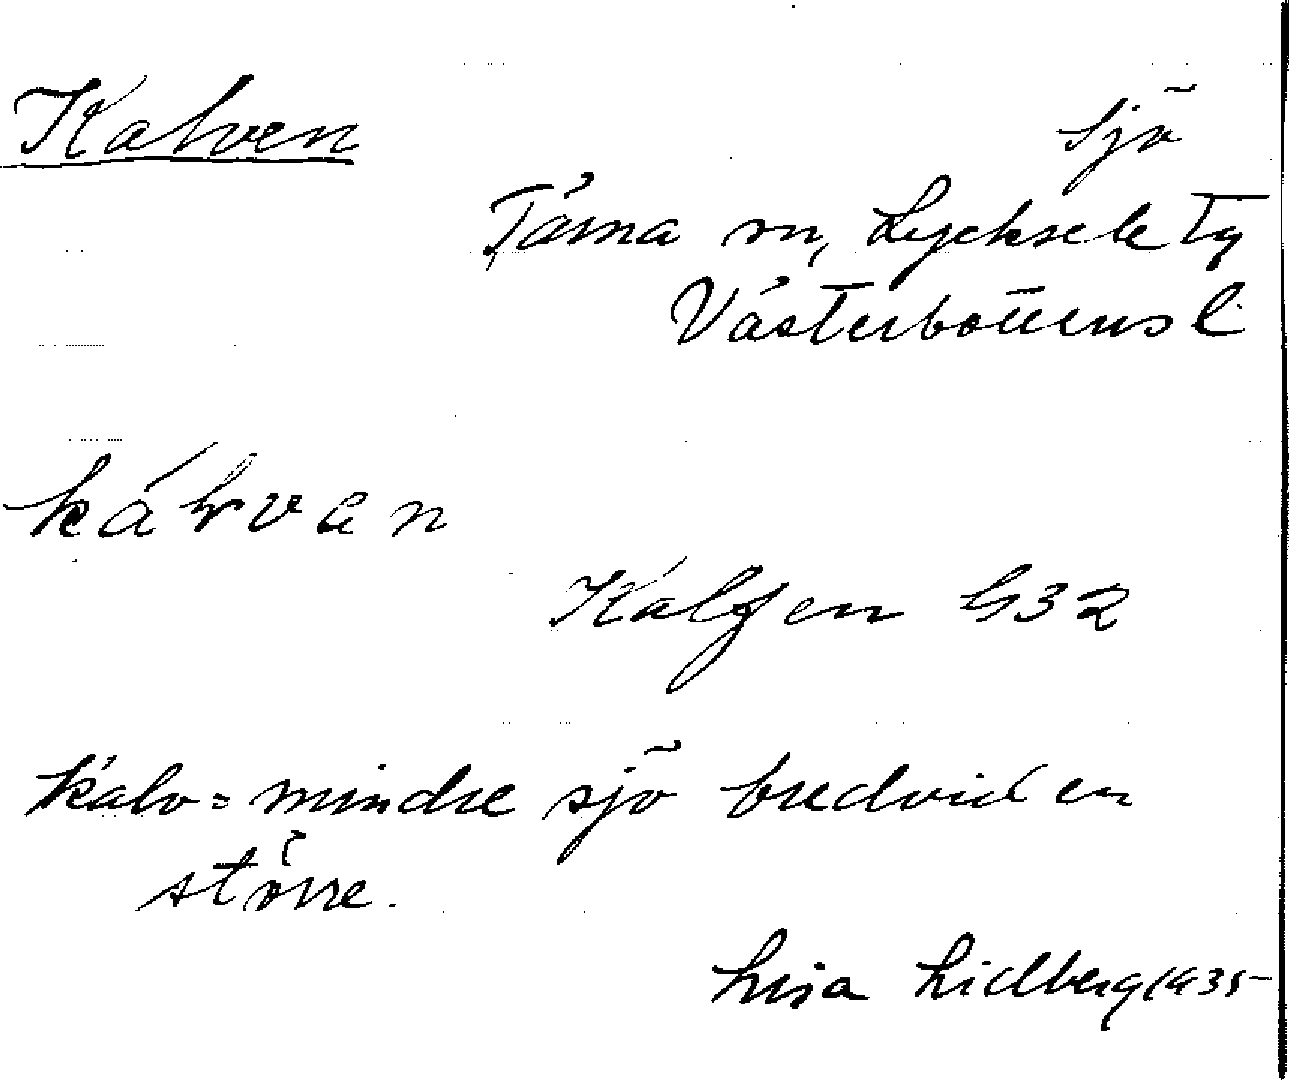 Kalven
sjö
Tärna sn, Lycksele Tg
Västerbottens l
kálvan
Kalfen G32
Kalv = mindre sjö bredvid en
större.
Lisa Lidberg 1935